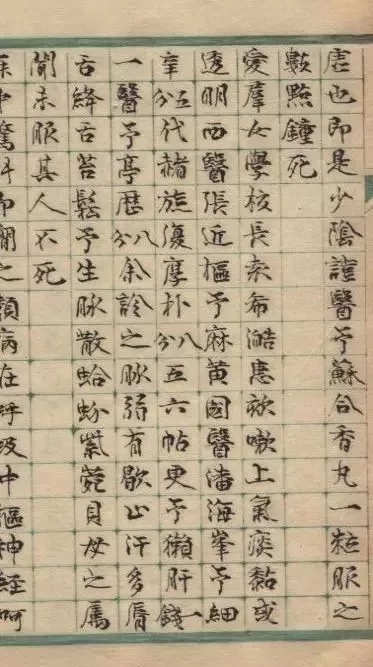 虛也即是少陰證醫予蘇合香丸一粒服之
數點鐘死
愛羣女學校長袁希澔患欬嗽上氣痰黏或
透明西醫張近樞予麻黃國醫潘海峯予細
辛五分代赭旋復厚朴八分五六帖更予獺肝一錢
一醫予葶歷八分余診之脉弱有歇止汗多脣
舌絳舌苔鬆予生脉散蛤蚧紫菀貝母之属
聞未服其人不死
之類病在呼吸中樞神經